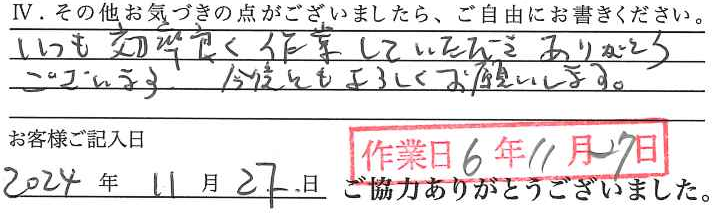 Ⅳ．その他お気づきの点がございましたら、ご自由にお書きください。
いつも効率良く作業していただき ありがとう
ございます 今後ともよろしくお願いします。
お客様ご記入日
作業日 6年11月27日
2024 年 11 月 27 日 ご協力ありがとうございました。